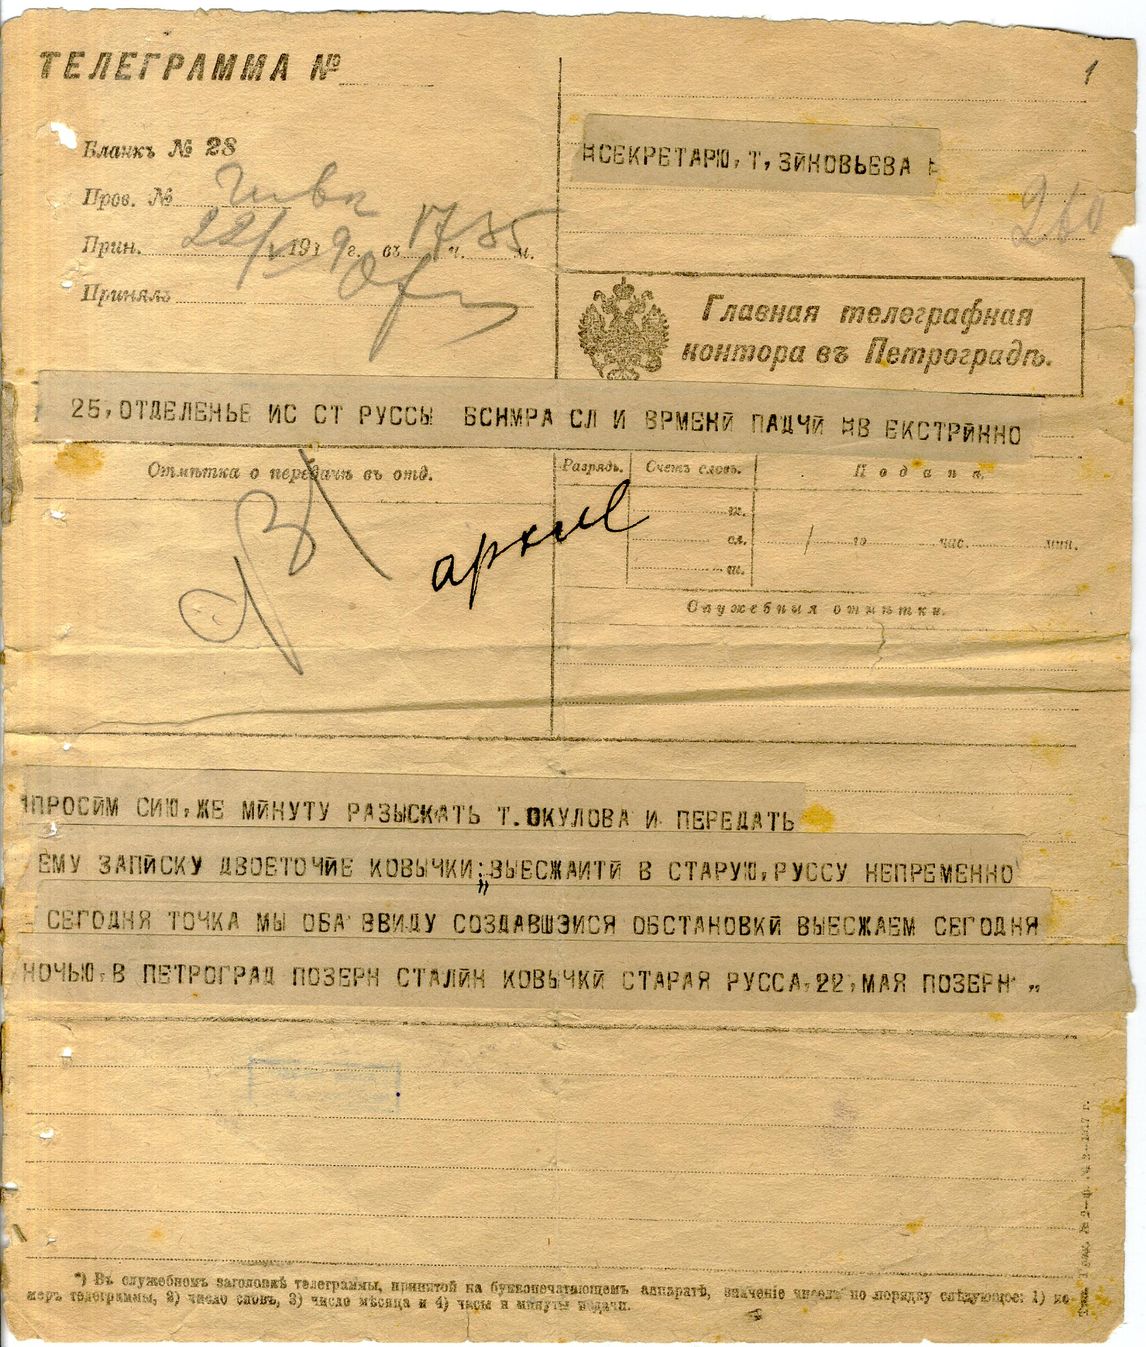 ТЕЛЕГРАММА №
1
Бланкъ № 28
СЕКРЕТАРЮ, Т, ЗЙНОВЬЕВА
Пров. №
Прин. 22/ 1919 г. въ 17 ч. 35 м.
Принялъ
Главная телеграфная
контора въ Петроградѣ.
25, ОТДЕЛЕНЬЕ ИС СТ РУССЫ БСНМРА СЛ И ВРМЕНЙ ПАДЧЙ В ЕКСТРЙННО
Отмѣтка о передачѣ въ отд.
Разрядъ.
Счетъ словъ.
Подана
архив
сл.
го час. мин.
ш.
Служебныя отмѣтки.
ПРОСЙМ СИЮ, ЖЕ МЙНУТУ РАЗЫСКАТЬ Т. ОКУЛОВА И ПЕРЕДАТЬ
ЕМУ ЗАПЙСКУ ДВОЕТОЧЙЕ КОВЫЧКИ :„ ВЫЕСЖАИТЙ В СТАРУЮ, РУССУ НЕПРЕМЕННО
СЕГОДНЯ ТОЧКА МЫ ОБА ВВИДУ СОЗДАВШЭИСЯ ОБСТАНОВКЙ ВЫЕСЖАЕМ СЕГОДНЯ
НОЧЬЮ, В ПЕТРОГРАД ПОЗЕРН СТАЛЙН КОВЫЧКЙ СТАРАЯ РУССА, 22, МАЯ ПОЗЕРН „
*) Въ служебномъ заголовкѣ телеграммы, принятой на буквопечатающемъ аппаратѣ, значеніе чиселъ по порядку слѣдующее: 1) но-
меръ телеграммы, 2) число словъ, 3) число мѣсяца и 4) часы и минуты подачи.